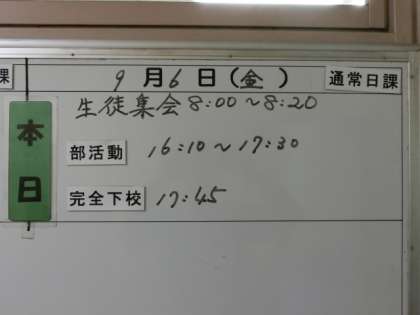 課 9月6日(金) 通常日課
本日
生徒集会 8:00~8:20
部活動 16:10~17:30
完全下校 17:45